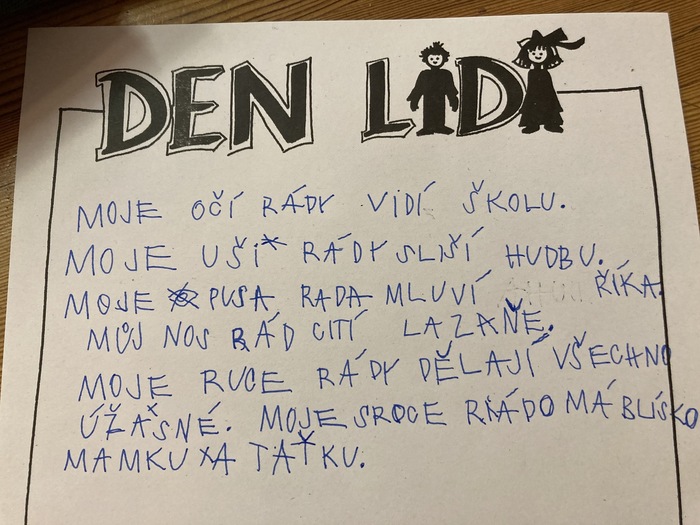 DEN LIDÍ
MOJE OČÍ RÁDY VIDÍ ŠKOLU.
MOJE UŠI RÁDY SLIŠÍ HUDBU.
MOJE PUSA RADA MLUVÍ ŘÍKA.
MŮJ NOS RÁD CITÍ LAZAŇE.
MOJE RUCE RÁDY DĚLAJÍ VŠECHNO
ÚŽAŠNÉ. MOJE SROCE RÁDO MÁ BLÍSKO
MAMKU A TAŤKU.